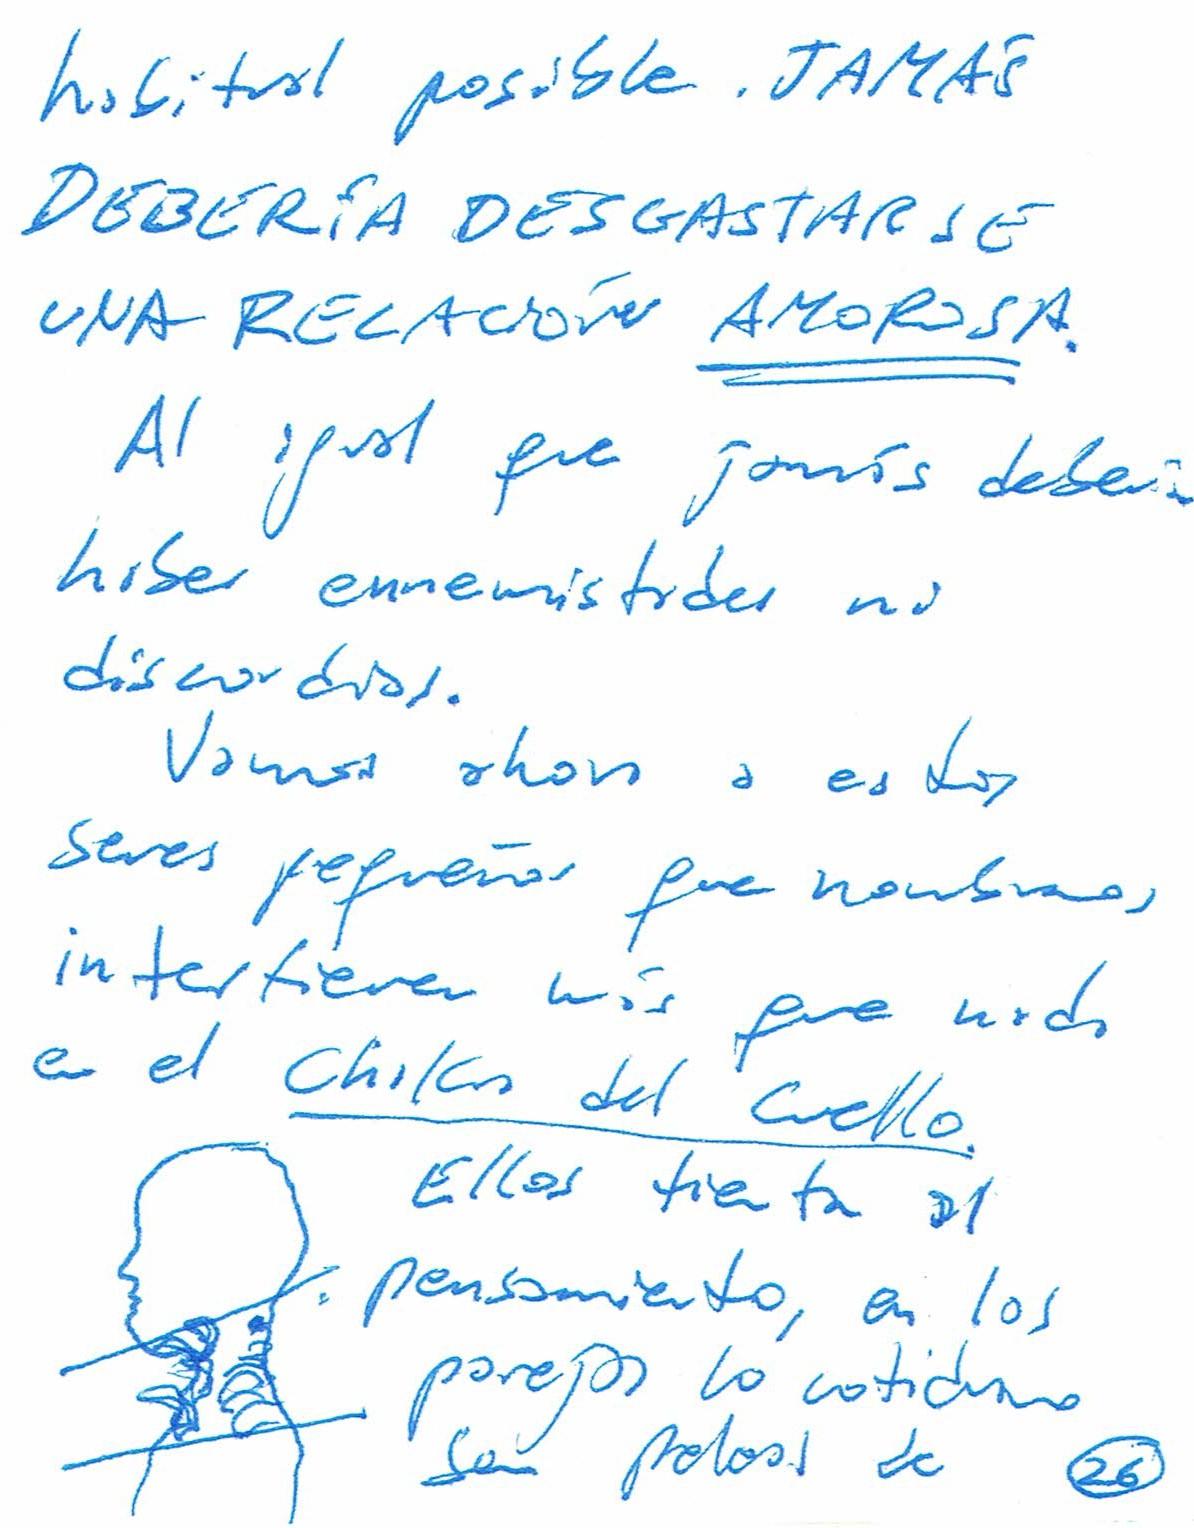 habitual posible. JAMÁS
DEBERÍA DESGASTARSE
UNA RELACIÓN AMOROSA.
Al igual que jamás debería
haber ennemistades ni
discordias.
Vamos ahora a estos
seres pequeños que nombramos,
intertieren más que nada
en el Chakra del Cuello.
Ellos tientan al
pensamiento, en los
parejas lo cotidiano
son peleas de
26